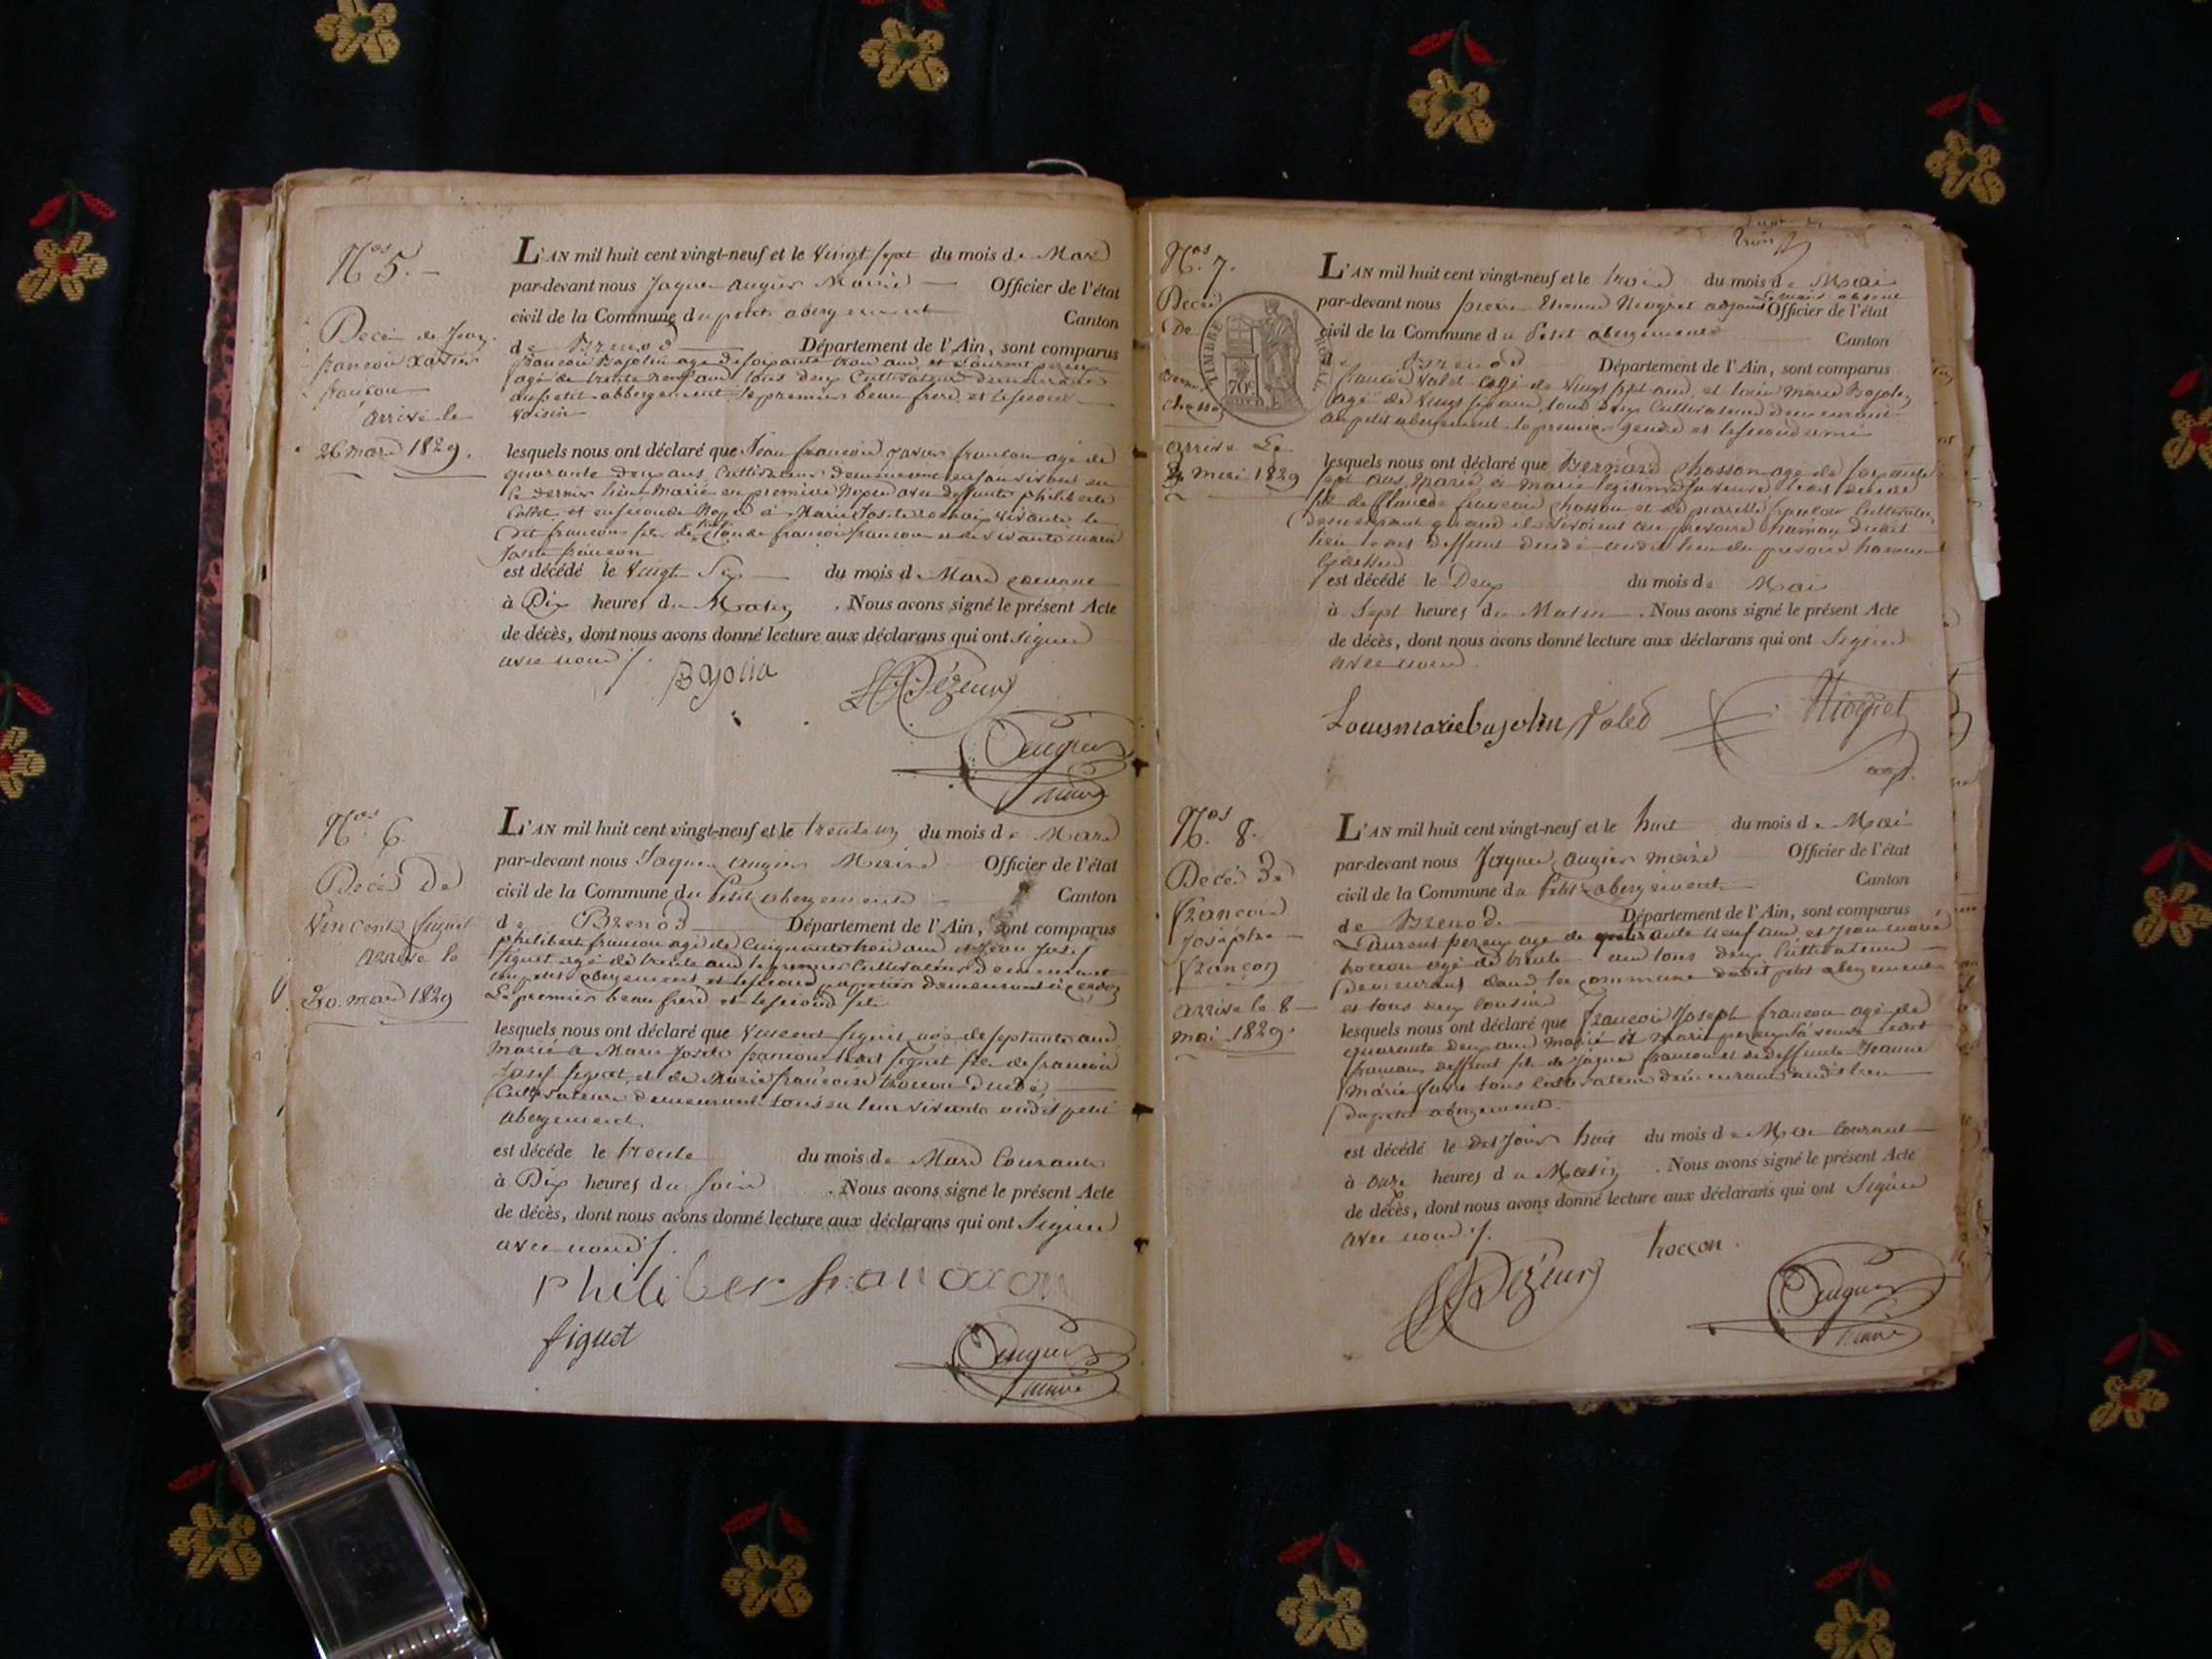 Nos 5.
Decès de Jean
francois Xavier
francon
arrivé le
26 mars 1829.
L'AN mil huit cent vingt-neuf et le vingt sept du mois de Mars
par-devant nous Jaques augier Maire Officier de l'état
civil de la Commune du petit abergement Canton
de Brenod Département de l'Ain, sont comparus
francois Bajolin agé de soixante trois ans et Laurent pereux
agé de trente neuf ans tous deux Cultivateurs demeurants
au petit abbergement le premier beau frere et le second
voisin
lesquels nous ont déclaré que Jean francois xavier francon agé de
quarante deux ans Cultivateur demeurant en son vivant en
ce dernier lieu Marié en premiere Noces avec deffunte philiberte
et en seconde Noces à Marie Josete vivante le
dit francon fils de Claude francois francon et de vivante marie
Josete francon
est décédé le vingt Six du mois de Mars courant
à Dix heures du Matin . Nous avons signé le présent Acte
de décès, dont nous avons donné lecture aux déclarans qui ont Signés
avec nous /.
Bajolin
Pézeux
Augier
maire
Nos 6
Decès De
Vincent figuet
arrivé le
30. mars 1829
L'AN mil huit cent vingt-neuf et le trente un du mois de Mars
par-devant nous Jaques augier Maire Officier de l'état
civil de la Commune du Petit abergement Canton
de Brenod Département de l'Ain, sont comparus
philibert francon agé de Cinquante trois ans et Jean Josef
figuet agé de trente ans le premier Cultivateur demeurant
au petit abergement et le second demeurant à Cerdon
Le premier beau frere et le second fils
lesquels nous ont déclaré que Vincent figuet agé de septante ans
Marié à Marie Josete francon ledit figuet fils de francois
Josef figuet et de Marie francoise trocon
Cultivateurs demeurant tous en leur vivants audit petit
abergement.
est décédé le trente du mois de Mars Courant
à Dix heures du soir . Nous avons signé le présent Acte
de décès, dont nous avons donné lecture aux déclarans qui ont Signés
avec nous /.
Philiber francon
figuet
Augier
maire
Nos. 7.
Decès
De
Bernard
Chasson
arrivé Le
2 mai 1829
TIMBRE ROYAL
70c
L'AN mil huit cent vingt-neuf et le trois du mois de Mai
par-devant nous pierre Etienne Niogret adjoint Le maire absent Officier de l'état
civil de la Commune du Petit abergement Canton
de Brenod Département de l'Ain, sont comparus
francois Valet agé de vingt sept ans et louis Marie Bajolin
agé de vingt six ans tous deux Cultivateurs demeurant
au petit abergement le premier gendre et le second ami
lesquels nous ont déclaré que Bernard Chasson agé de soixante
sept ans Marié à Marie
fils de Claude francois Chasson et de pierrette francon Cultivateurs
demeurant quand ils vivoient au hameau dudit
lieu
est décédé le Deux du mois de Mai
à Sept heures du Matin . Nous avons signé le présent Acte
de décès, dont nous avons donné lecture aux déclarans qui ont Signés
avec nous.
Louis marie bajolin Valet Niogret
adj.
Nos. 8.
Decès De
francois
Josephe
francon
arrivé le 8
mai 1829.
L'AN mil huit cent vingt-neuf et le huit du mois de Mai
par-devant nous Jaques augier maire Officier de l'état
civil de la Commune du Petit abergement Canton
de Brenod. Département de l'Ain, sont comparus
Laurent pezeux agé de quarante neuf ans et Jean marie
trocon agé de trente ans tous deux Cultivateurs
demeurant dans la commune dudit petit abergement
et tous deux cousins
lesquels nous ont déclaré que francois Joseph francon agé de
quarante deux ans marié à Marie pezeux sa veuve ledit
francon deffunt fils de Jaques francon et de deffunte Jeanne
Marie favre tous Cultivateurs demeurant audit lieu
du petit abergement.
est décédé le dit Jour huit du mois de Mai Courant
à onze heures du Matin . Nous avons signé le présent Acte
de décès, dont nous avons donné lecture aux déclarans qui ont Signés
avec nous /.
Pézeux
troccon
Augier
maire